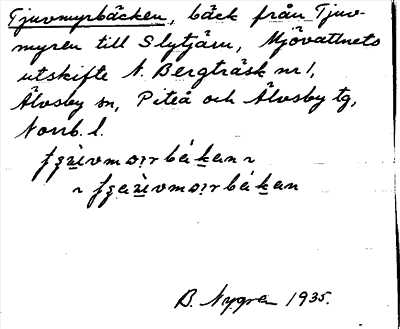 Tjuvmyrbäcken, bäck från Tjuv-
myren till Slytjärn, Mjövattnets
utskifte N. Bergträsk nr 1,
Älvsby sn, Piteå och Älvsby tg,
Norrb. l.
B. Nygren 1935.